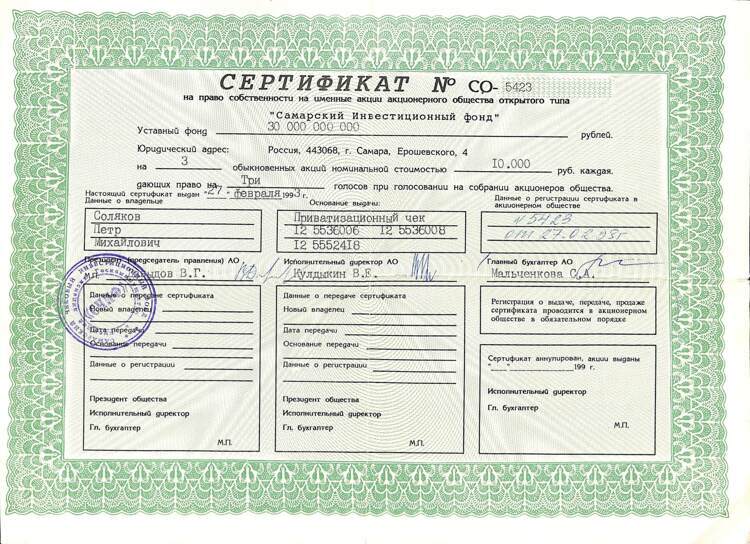 СЕРТИФИКАТ № СО-5423
на право собственности на именные акции акционерного общества открытого типа
"Самарский Инвестиционный фонд"
Уставный фонд 30 000 000 000 рублей.
Юридический адрес: Россия, 443068, г. Самара, Ерошевского, 4
на 3 обыкновенных акций номинальной стоимостью 10.000 руб. каждая.
дающих право на Три голосов при голосовании на собрании акционеров общества.
Настоящий сертификат выдан "27" февраля 1993г.
Данные о владельце
Соляков
Петр
Михайлович
Основание выдачи:
Приватизационный чек
I2 5536006 I2 5536008
I2 5552418
Данные о регистрации сертификата в
акционерном обществе
№5423
от 27.02.93г
Президент (председатель правления) АО
ыдов В.Г.
Исполнительный директор АО
Кулдыкин В.Е.
Главный бухгалтер АО
Мальченкова С.А.
Данные о передаче сертификата
Новый владелец
Дата передачи
Основание передачи
Данные о регистрации
Президент общества
Исполнительный директор
Гл. бухгалтер
М.П.
Данные о передаче сертификата
Новый владелец
Дата передачи
Основание передачи
Данные о регистрации
Президент общества
Исполнительный директор
Гл. бухгалтер
М.П.
Регистрация о выдаче, передаче, продаже
сертификата проводится в акционерном
обществе в обязательном порядке
Сертификат аннулирован, акции выданы
"____"____________199 г.
Исполнительный директор
Гл. бухгалтер
М.П.